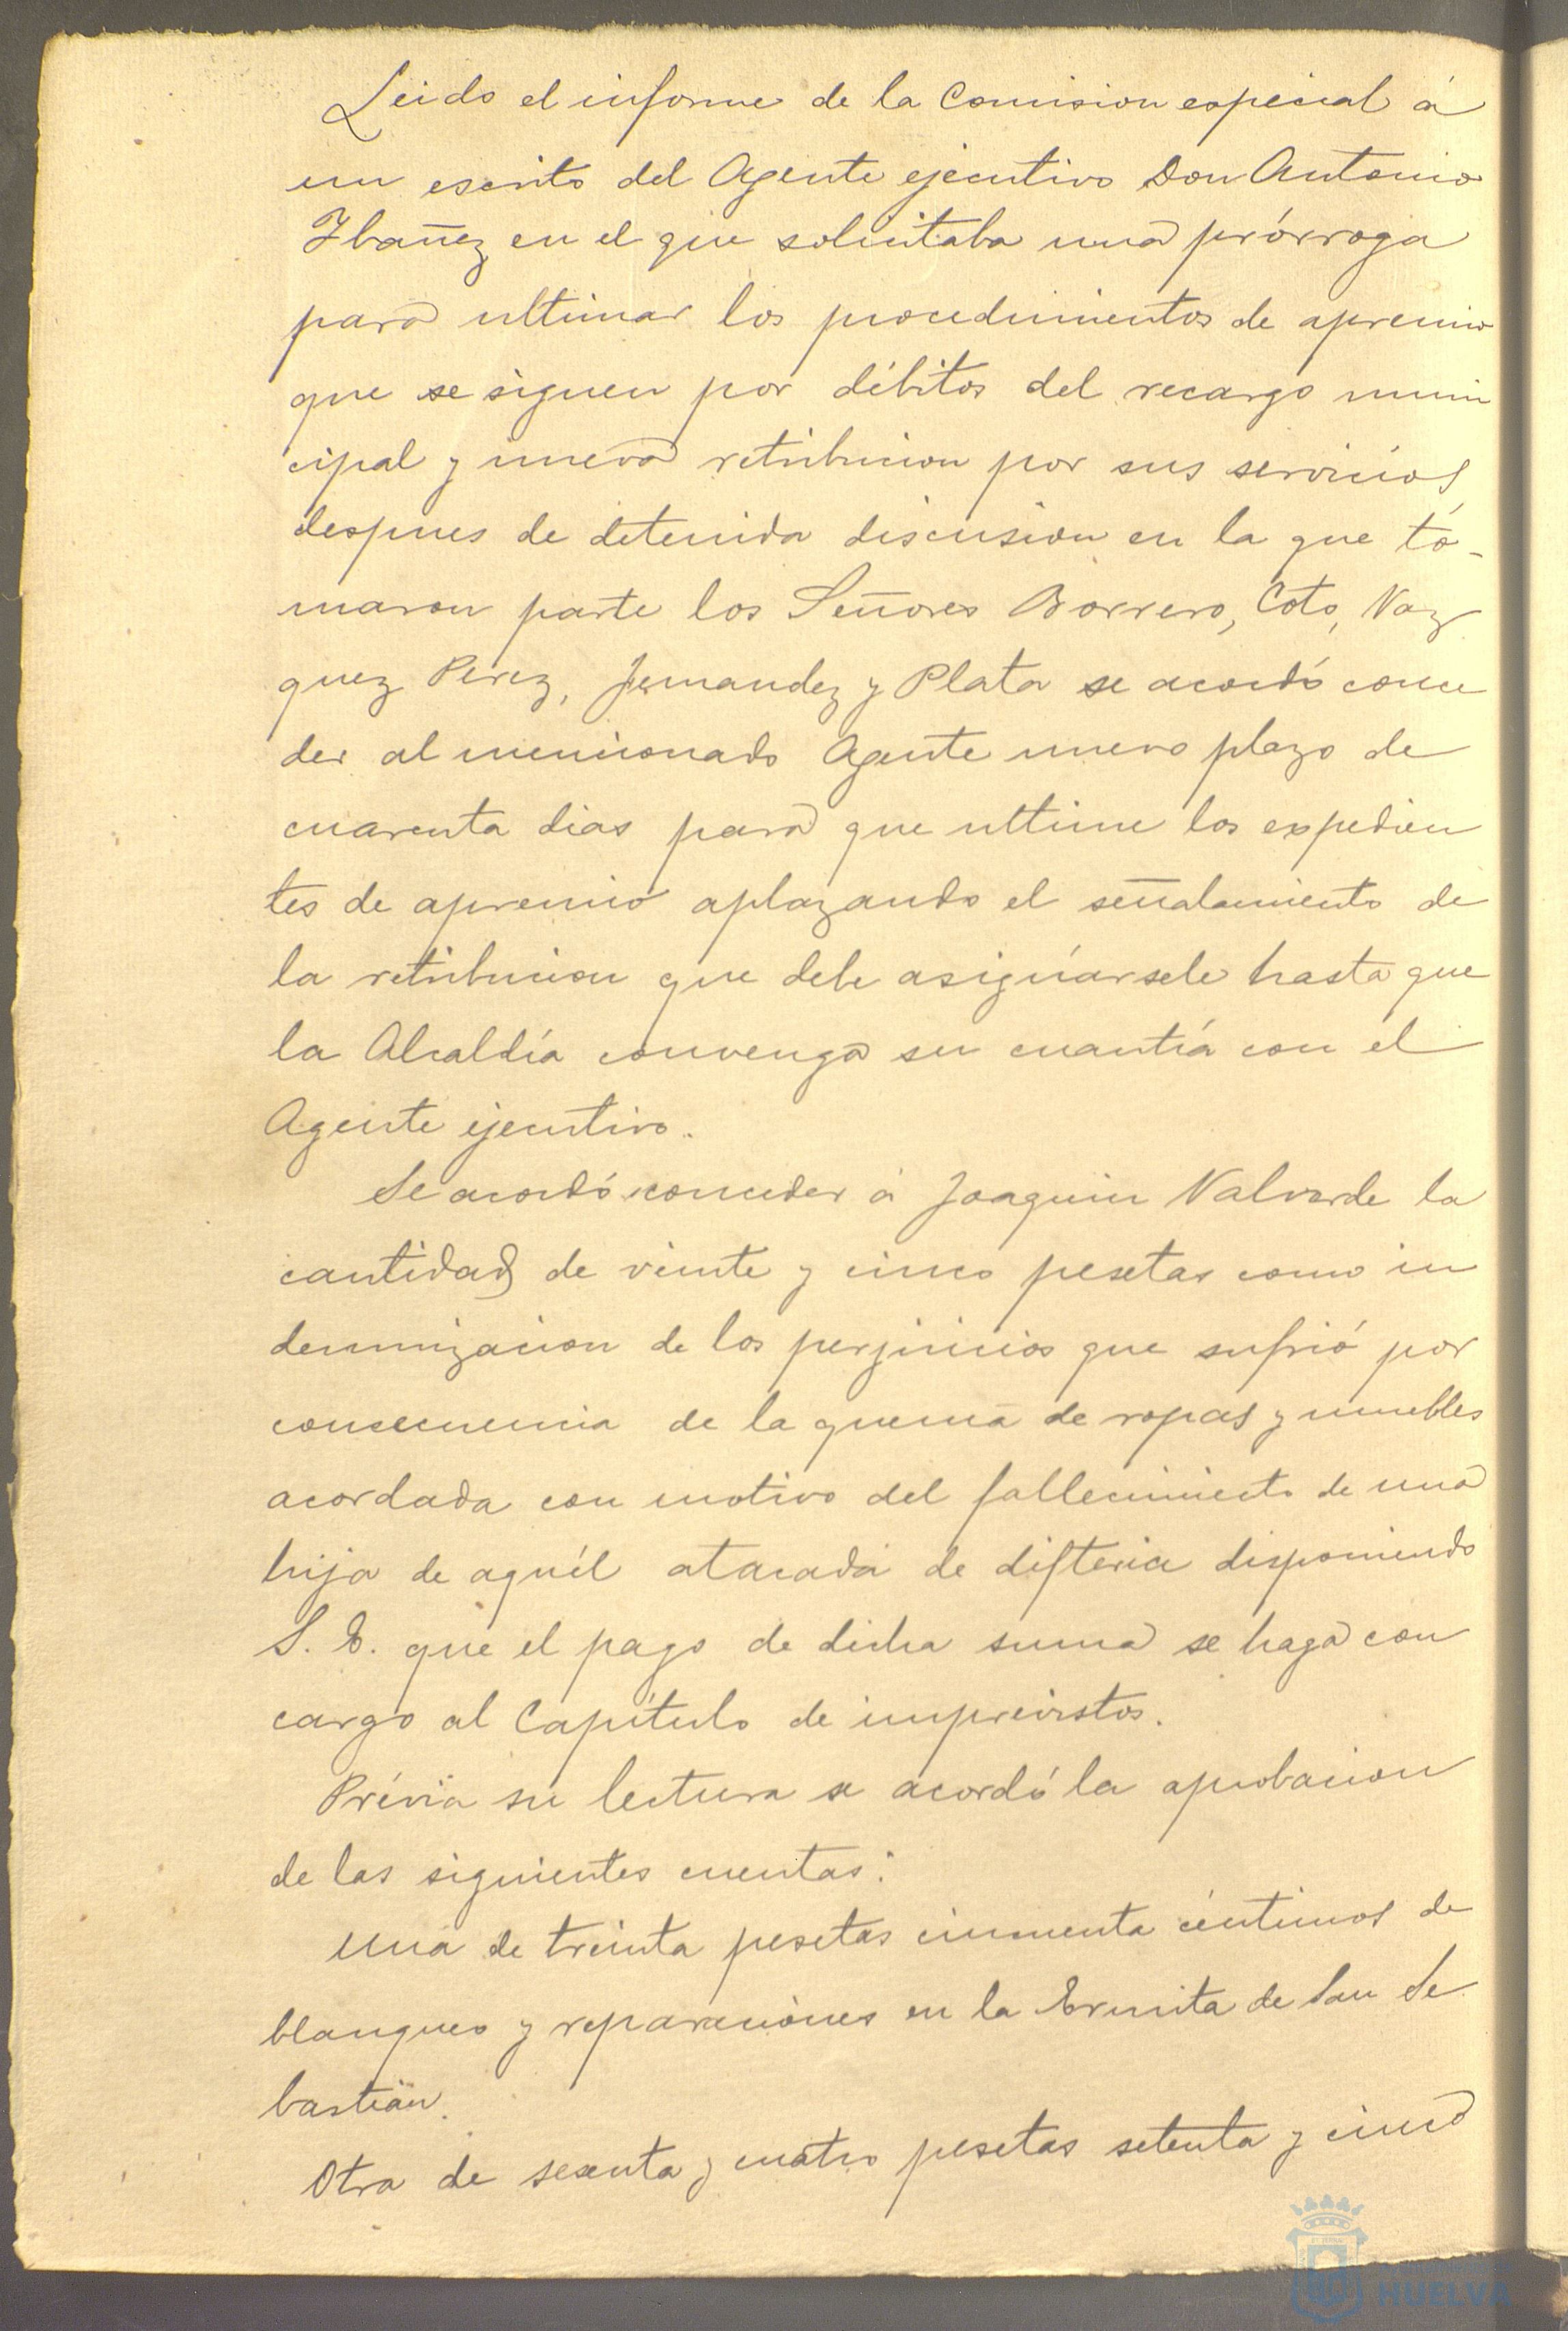 Leido el informe de la Comision especial á
un escrito del Agente ejecutivo Don Antonio
Ibañez en el que solicitaba una prórroga
para ultimar los procedimientos de apremio
que se siguen por débitos del recargo muni
cipal y nueva retribucion por sus servicios,
despues de detenida discusion en la que to-
maron parte los Señores Borrero, Coto, Vaz
quez Perez, Jernandez y Plata se acordó conce
der al mencionado Agente nuevo plazo de
cuarenta dias para que ultime los expedien
tes de apremio aplazando el señalamiento de
la retribucion que debe asignársele hasta que
la Alcaldía convenga su cuantía con el
Agente ejecutivo.
Se acordó conceder á Joaquin Valverde la
cantidad de veinte y cinco pesetas como in
demnizacion de los perjuicios que sufrió por
consecuencia de la quema de ropas y muebles
acordada con motivo del fallecimiento de una
hija de aquél atacada de difteria disponiendo
S. E. que el pago de dicha suma se haga con
cargo al Capítulo de imprevistos.
Prévia su lectura se acordó la aprobacion
de las siguientes cuentas:
Una de treinta pesetas cincuenta céntimos de
blanqueo y reparaciones en la Ermita de San Se
bastián.
Otra de sesenta y cuatro pesetas setenta y cinco
HUELVA